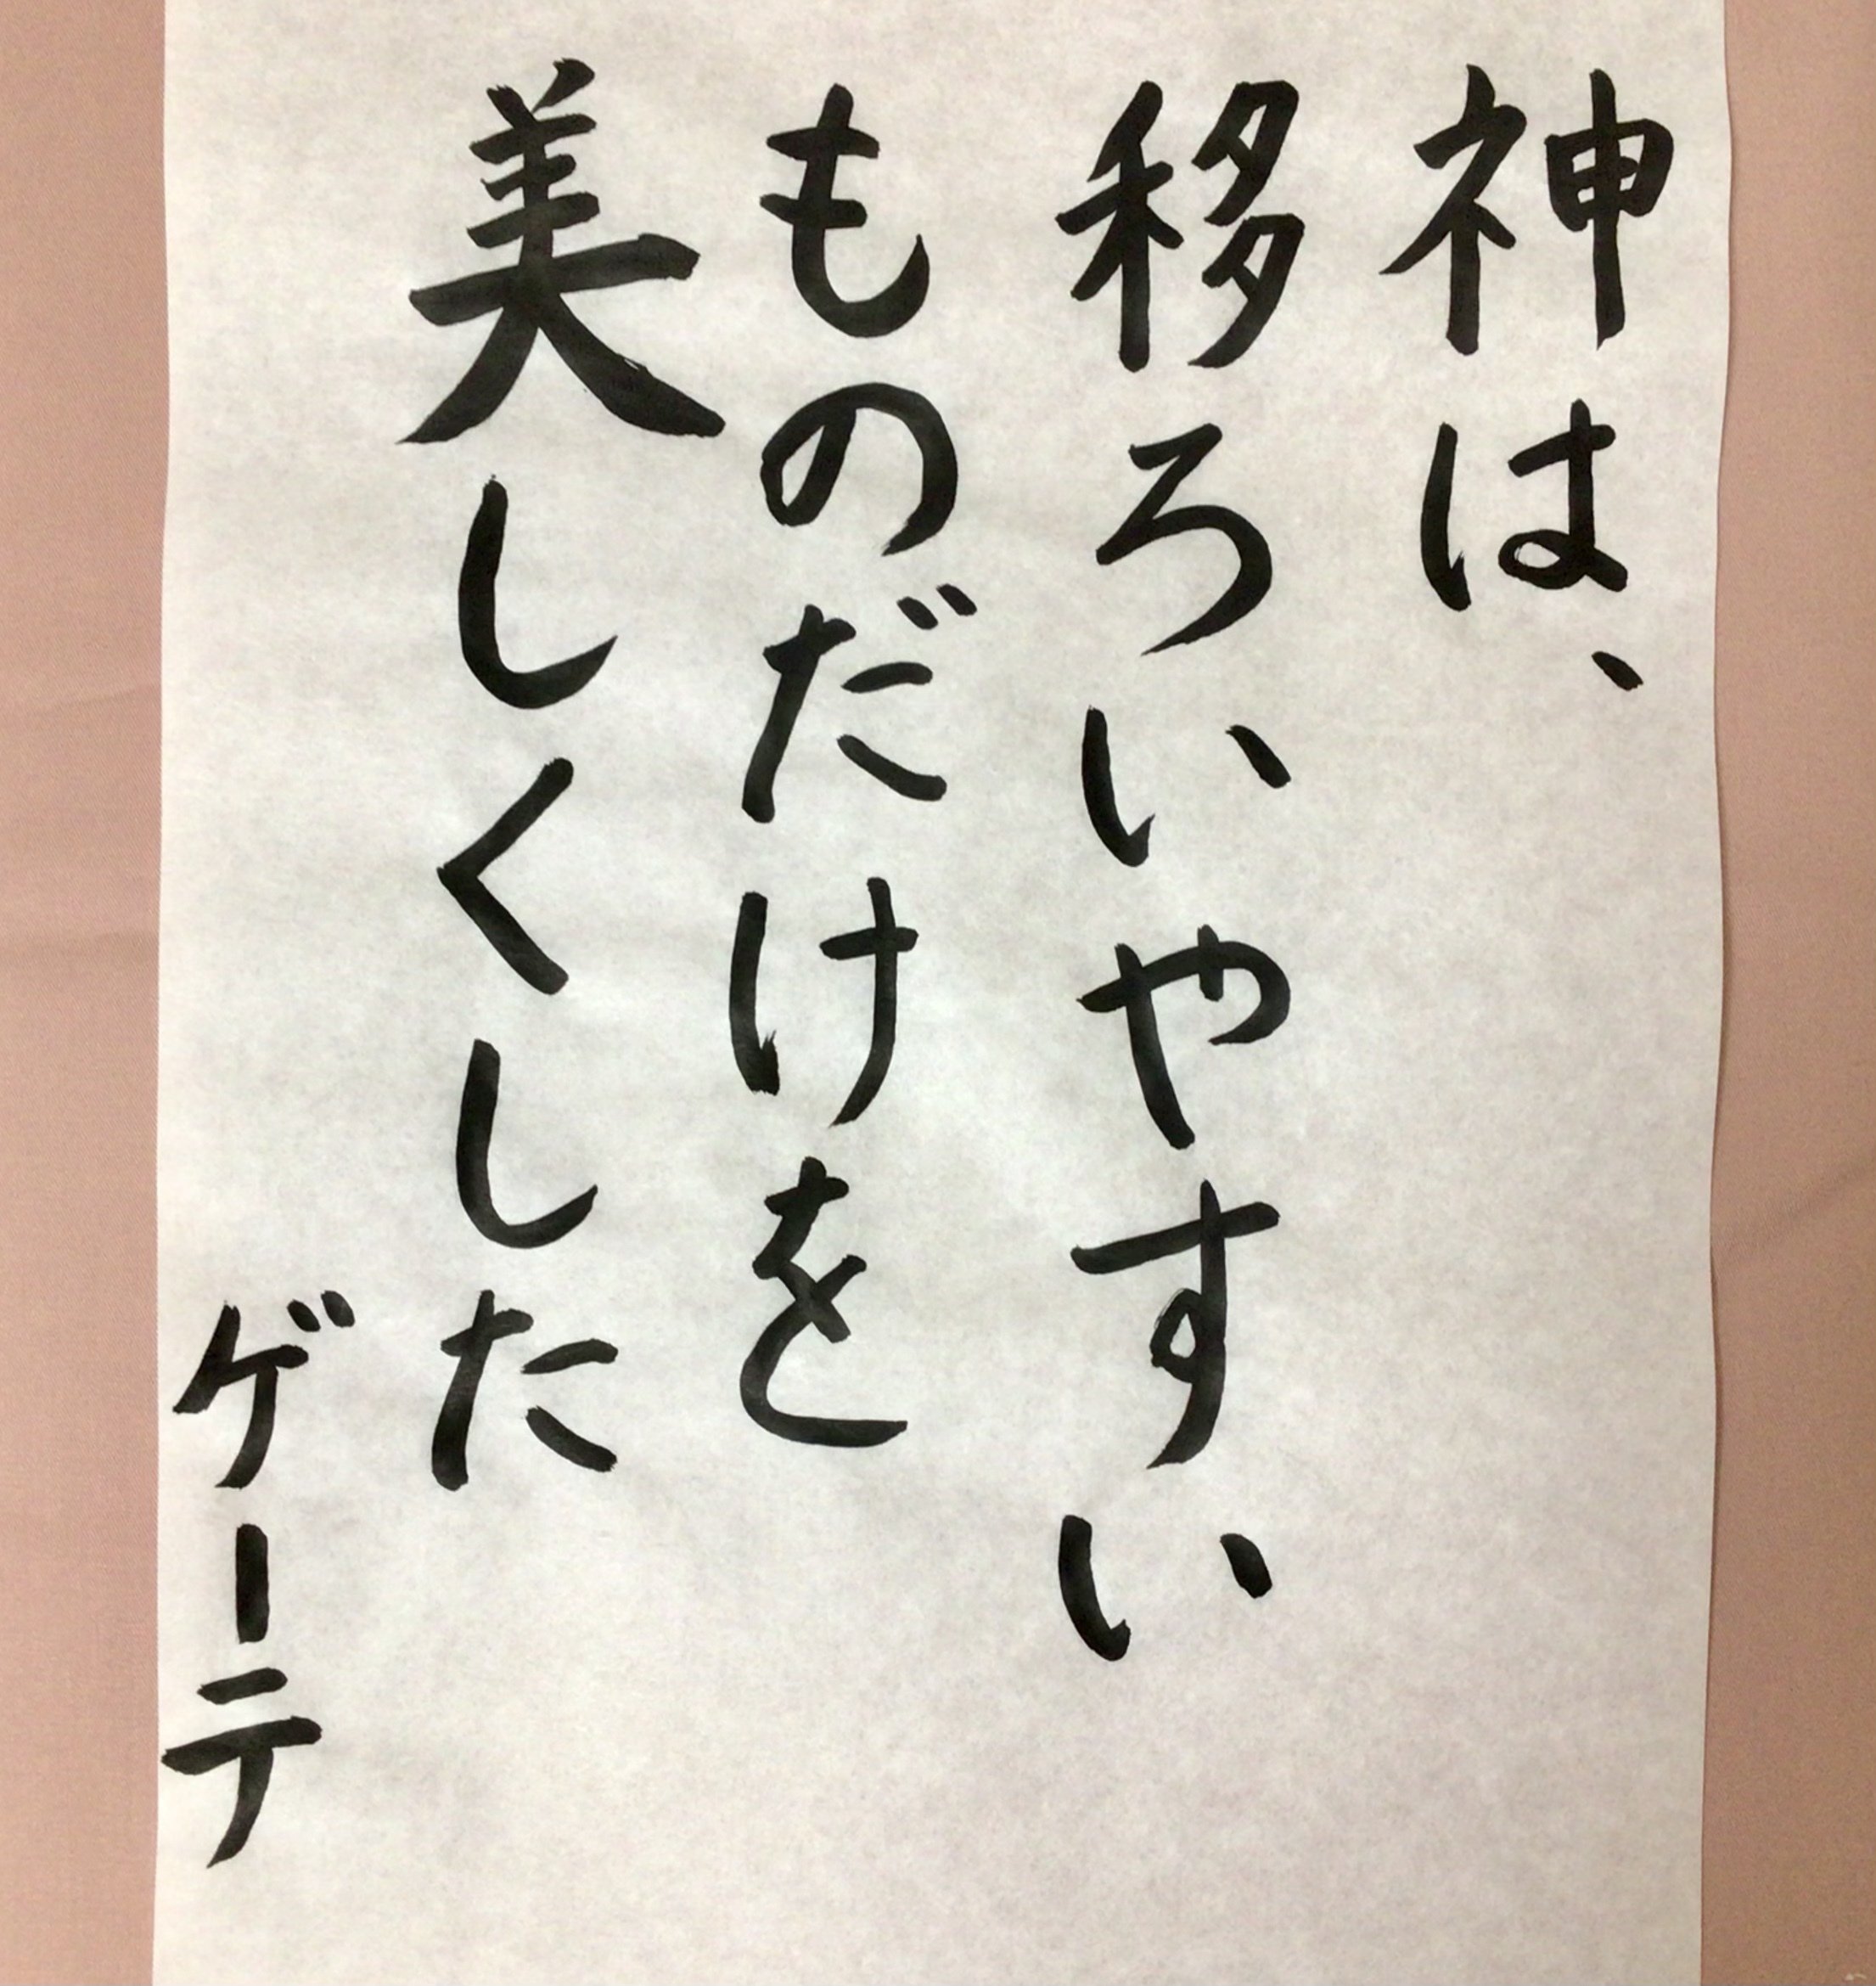 神は、
移ろいやすい
ものだけを
美しくした
ゲーテ